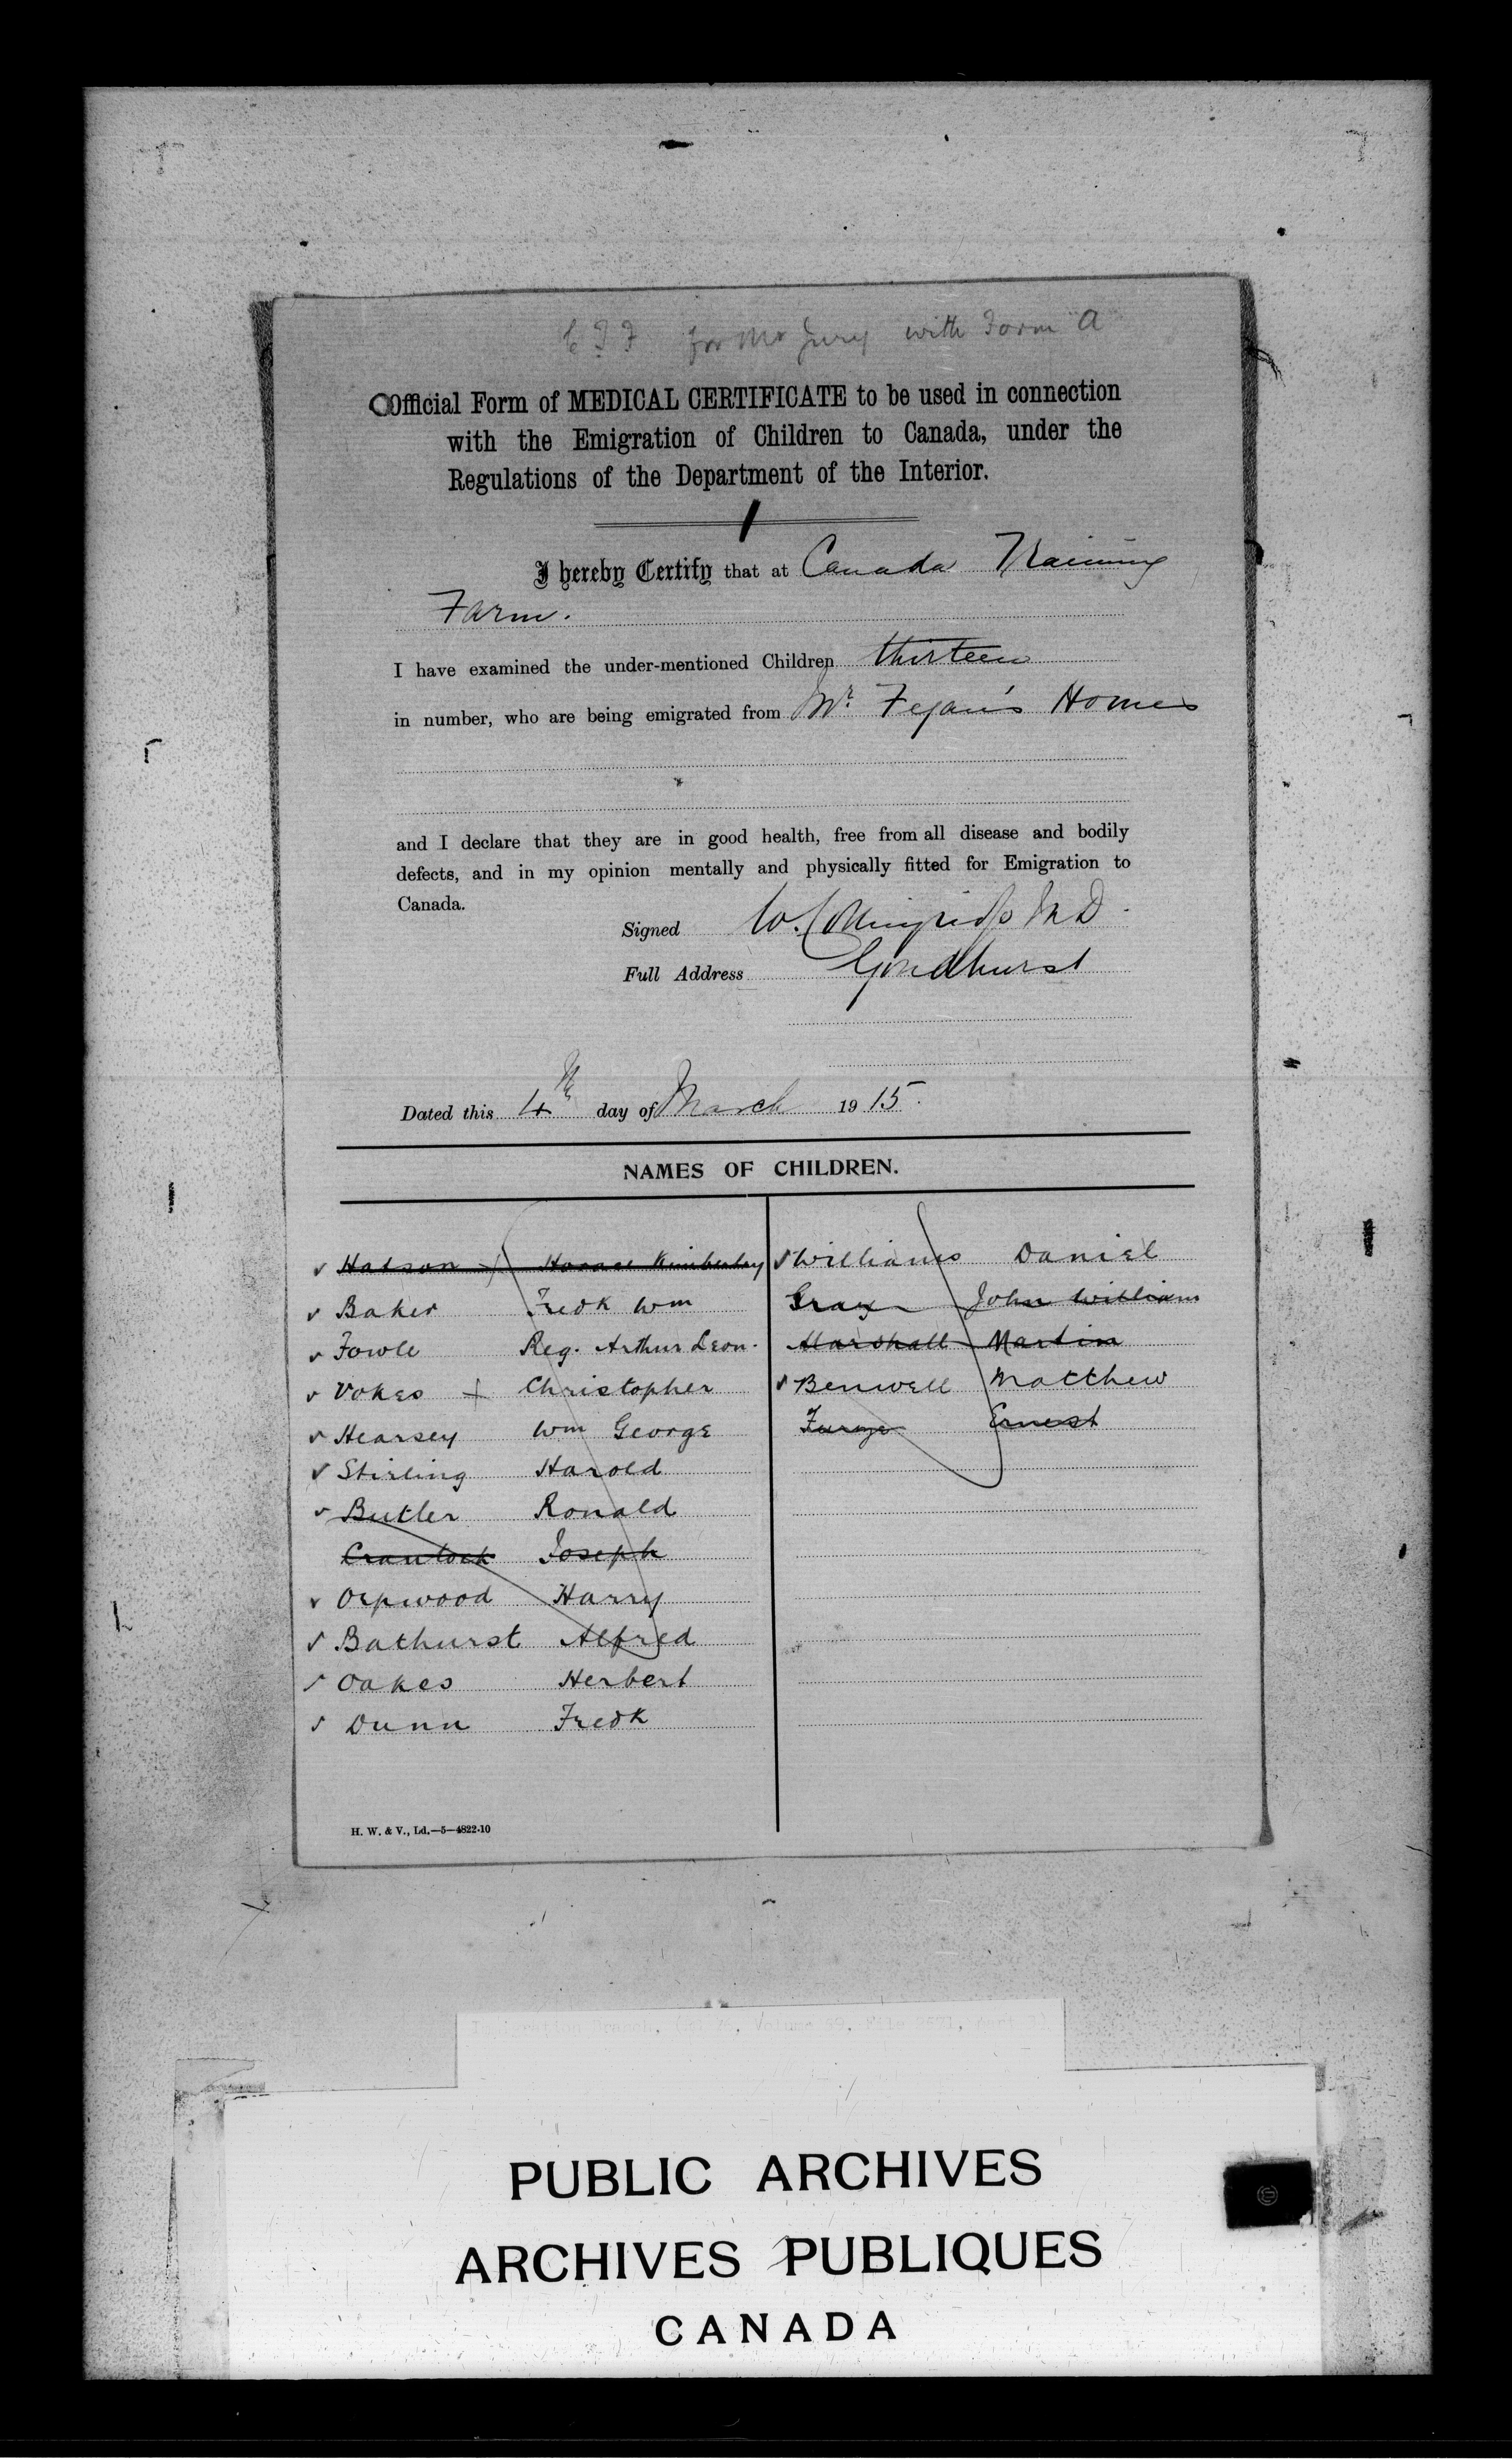 for Mr Jury with Form A
Official Form of MEDICAL CERTIFICATE to be used in connection
with the Emigration of Children to Canada, under the
Regulations of the Department of the Interior.
I hereby Certify that at Canada Training
Farm.
I have examined the under-mentioned Children thirteen
in number, who are being emigrated from Mr. Fegan's Homes
and I declare that they are in good health, free from all disease and bodily
defects, and in my opinion mentally and physically fitted for Emigration to
Canada.
Signed W. Collingridge M D.
Full Address Goudhurst
Dated this 4th day of March 1915.
NAMES OF CHILDREN.
✓ Hatson + Horace Kimberley
✓ Baker Fredk Wm
✓ Fowle Reg. Arthur Leon.
✓ Vokes + Christopher
✓ Hearsey Wm George
✓ Stirling Harold
✓ Butler Ronald
Crantock Joseph
✓ Orpwood Harry
✓ Bathurst Alfred
✓ Oakes Herbert
✓ Dunn Fredk
✓ Williams Daniel
Gray John William
Marshall Martin
✓ Benwell Matthew
Furze Ernest
H. W. & V., Ld.—5—4822-10
PUBLIC ARCHIVES
ARCHIVES PUBLIQUES
CANADA